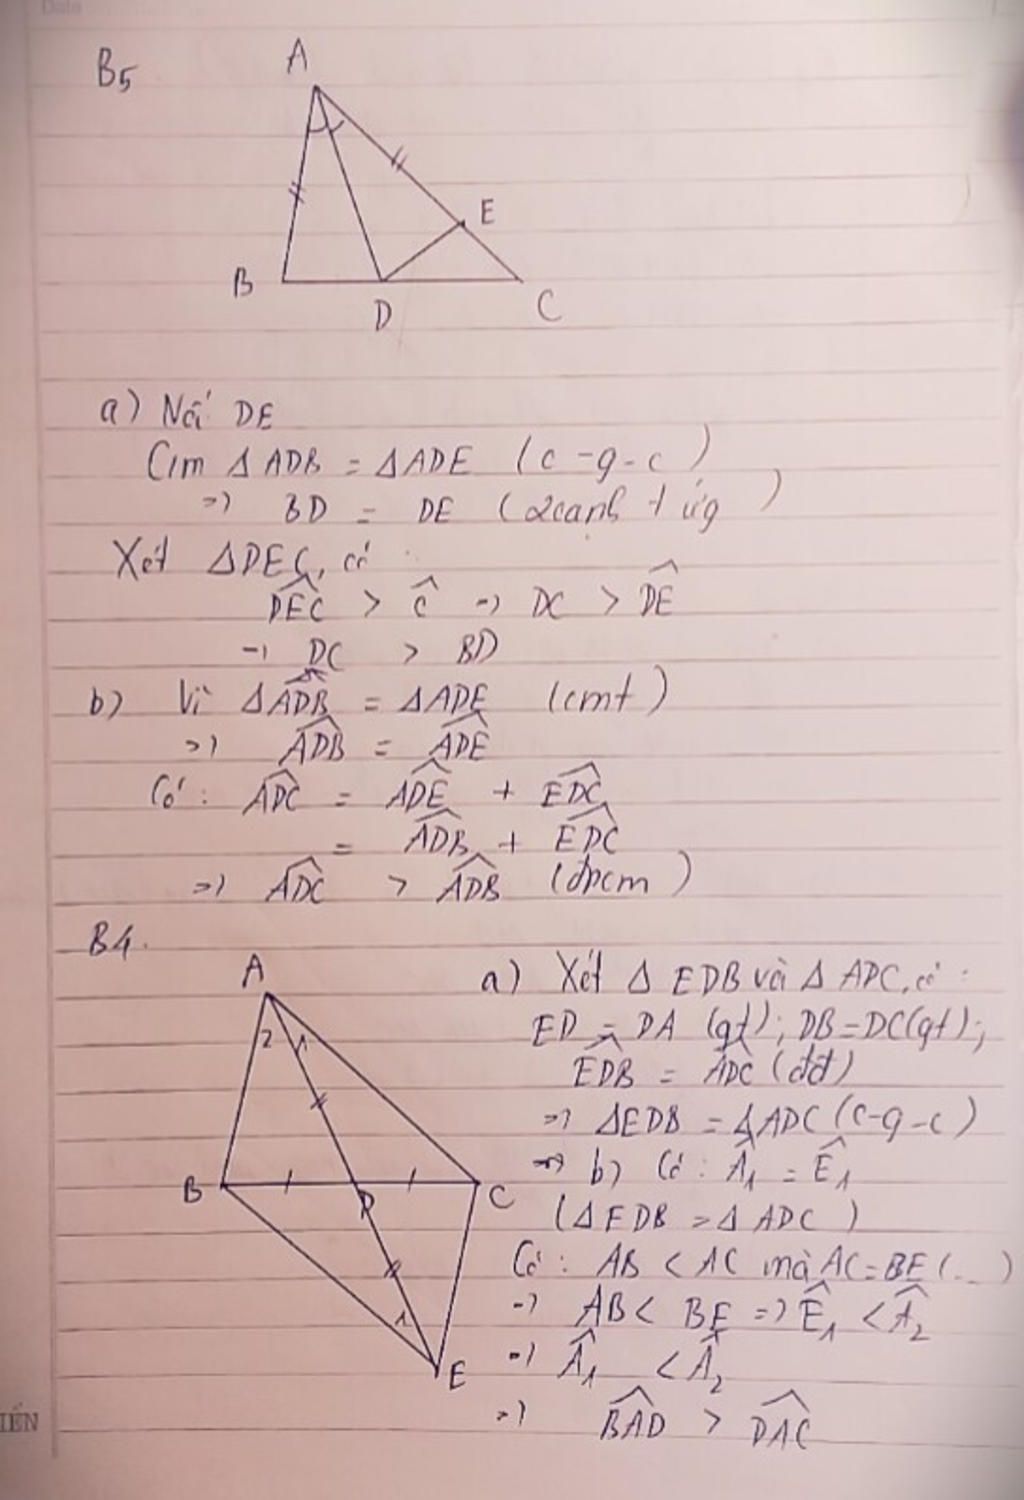 Date
B5
A
E
B
D
C
a) Nối DE
C1m Δ ADB = ΔADE (c-g-c)
=> BD = DE (2 cạnh t ứg)
Xét ΔDEC, có
DEC^ > C^ => DC > DE^
=> DC > BD
b) Vì ΔADB = ΔADE (cmt)
=> ADB^ = ADE^
Có: ADC^ = ADE^ + EDC^
= ADB^ + EDC^
=> ADC^ > ADB^ (đpcm)
B4.
A
2 1
B
D
C
1
E
a) Xét Δ EDB và Δ ADC, có:
ED = DA (gt); DB=DC(gt);
EDB^ = ADC^ (đđ)
=> ΔEDB = ΔADC (c-g-c)
=> b) Có: A^1 = E^1
(ΔEDB = Δ ADC)
Có: AB < AC mà AC=BE (...)
=> AB < BE => E^1 < A^2
=> A^1 < A^2
=> BAD^ > DAC^
IẾN